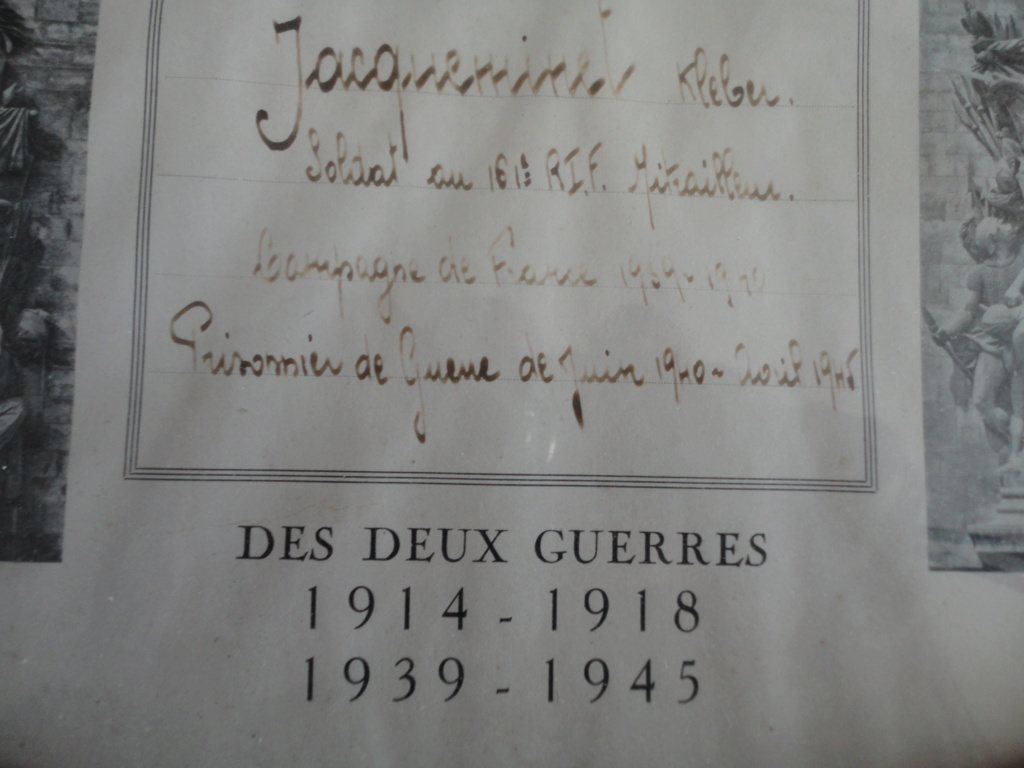 Jacqueminet Kléber.
Soldat au 161è R.I.F. Mitrailleur.
Campagne de France 1939-1940
Prisonnier de Guerre de Juin 1940 - Août 1945
DES DEUX GUERRES
1914 - 1918
1939 - 1945